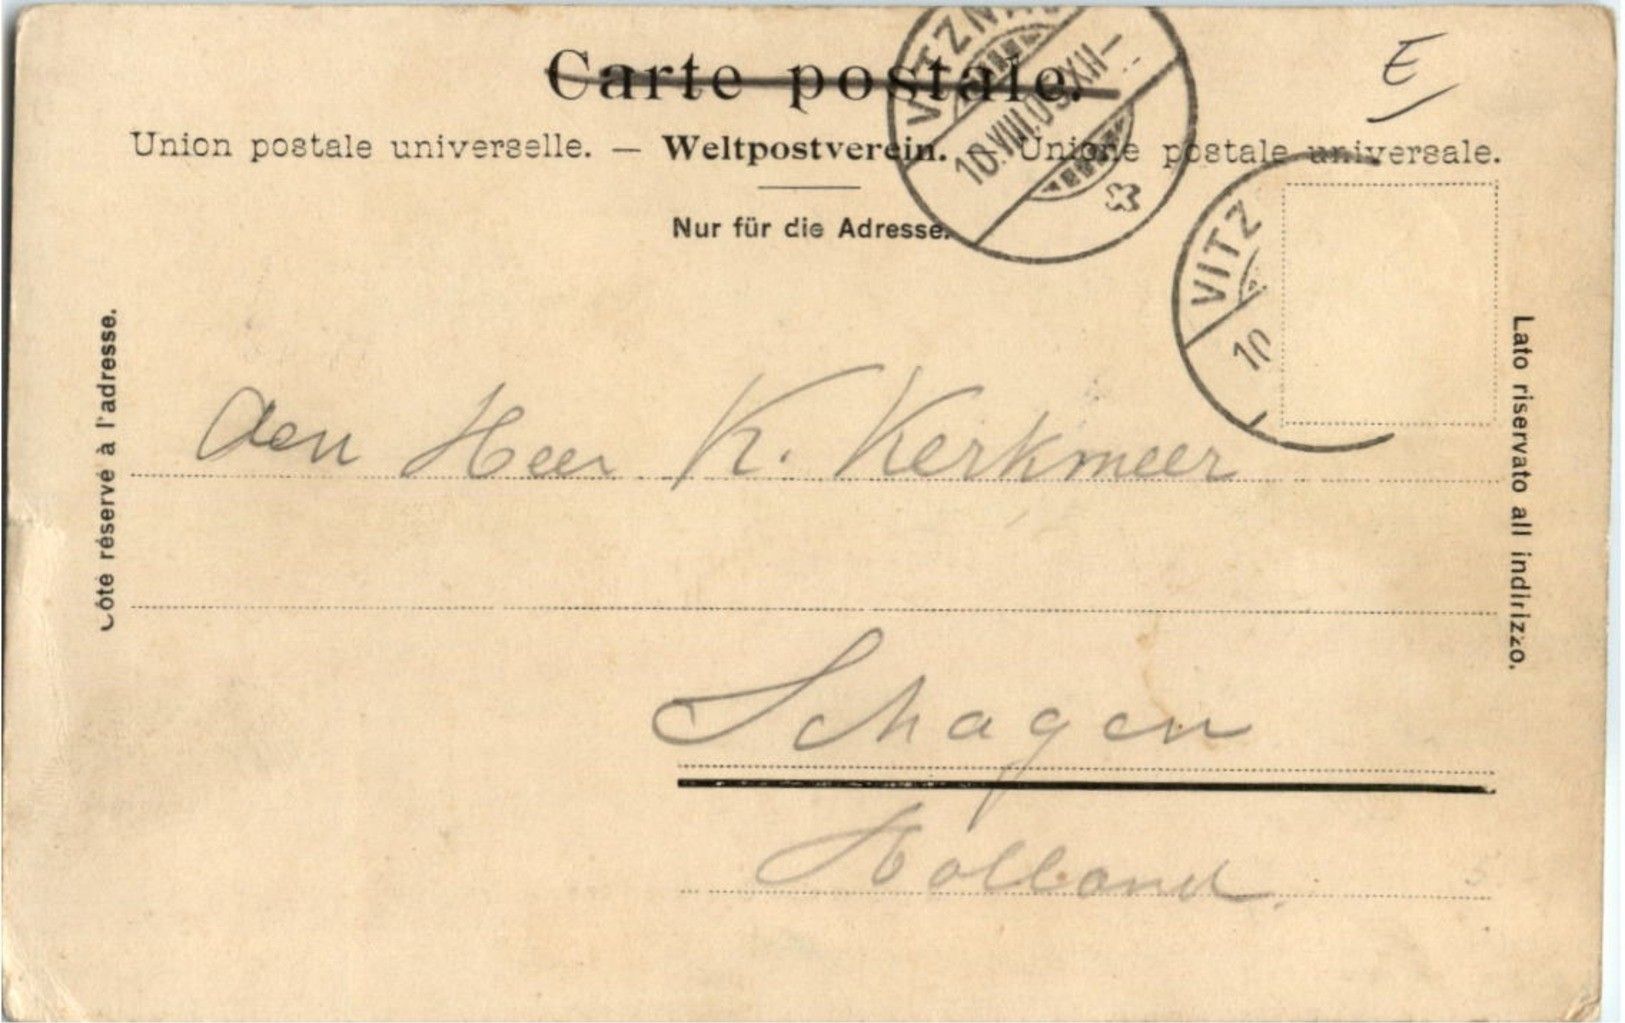 Carte postale.
E
VITZNAU
10.VIII.09.XII—
Union postale universelle. — Weltpostverein. — Unione postale universale.
Nur für die Adresse.
VITZ
10
Côté réservé à l'adresse.
Lato riservato all indirizzo.
Aen Heer K. Kerkmeer
Schagen
Holland.